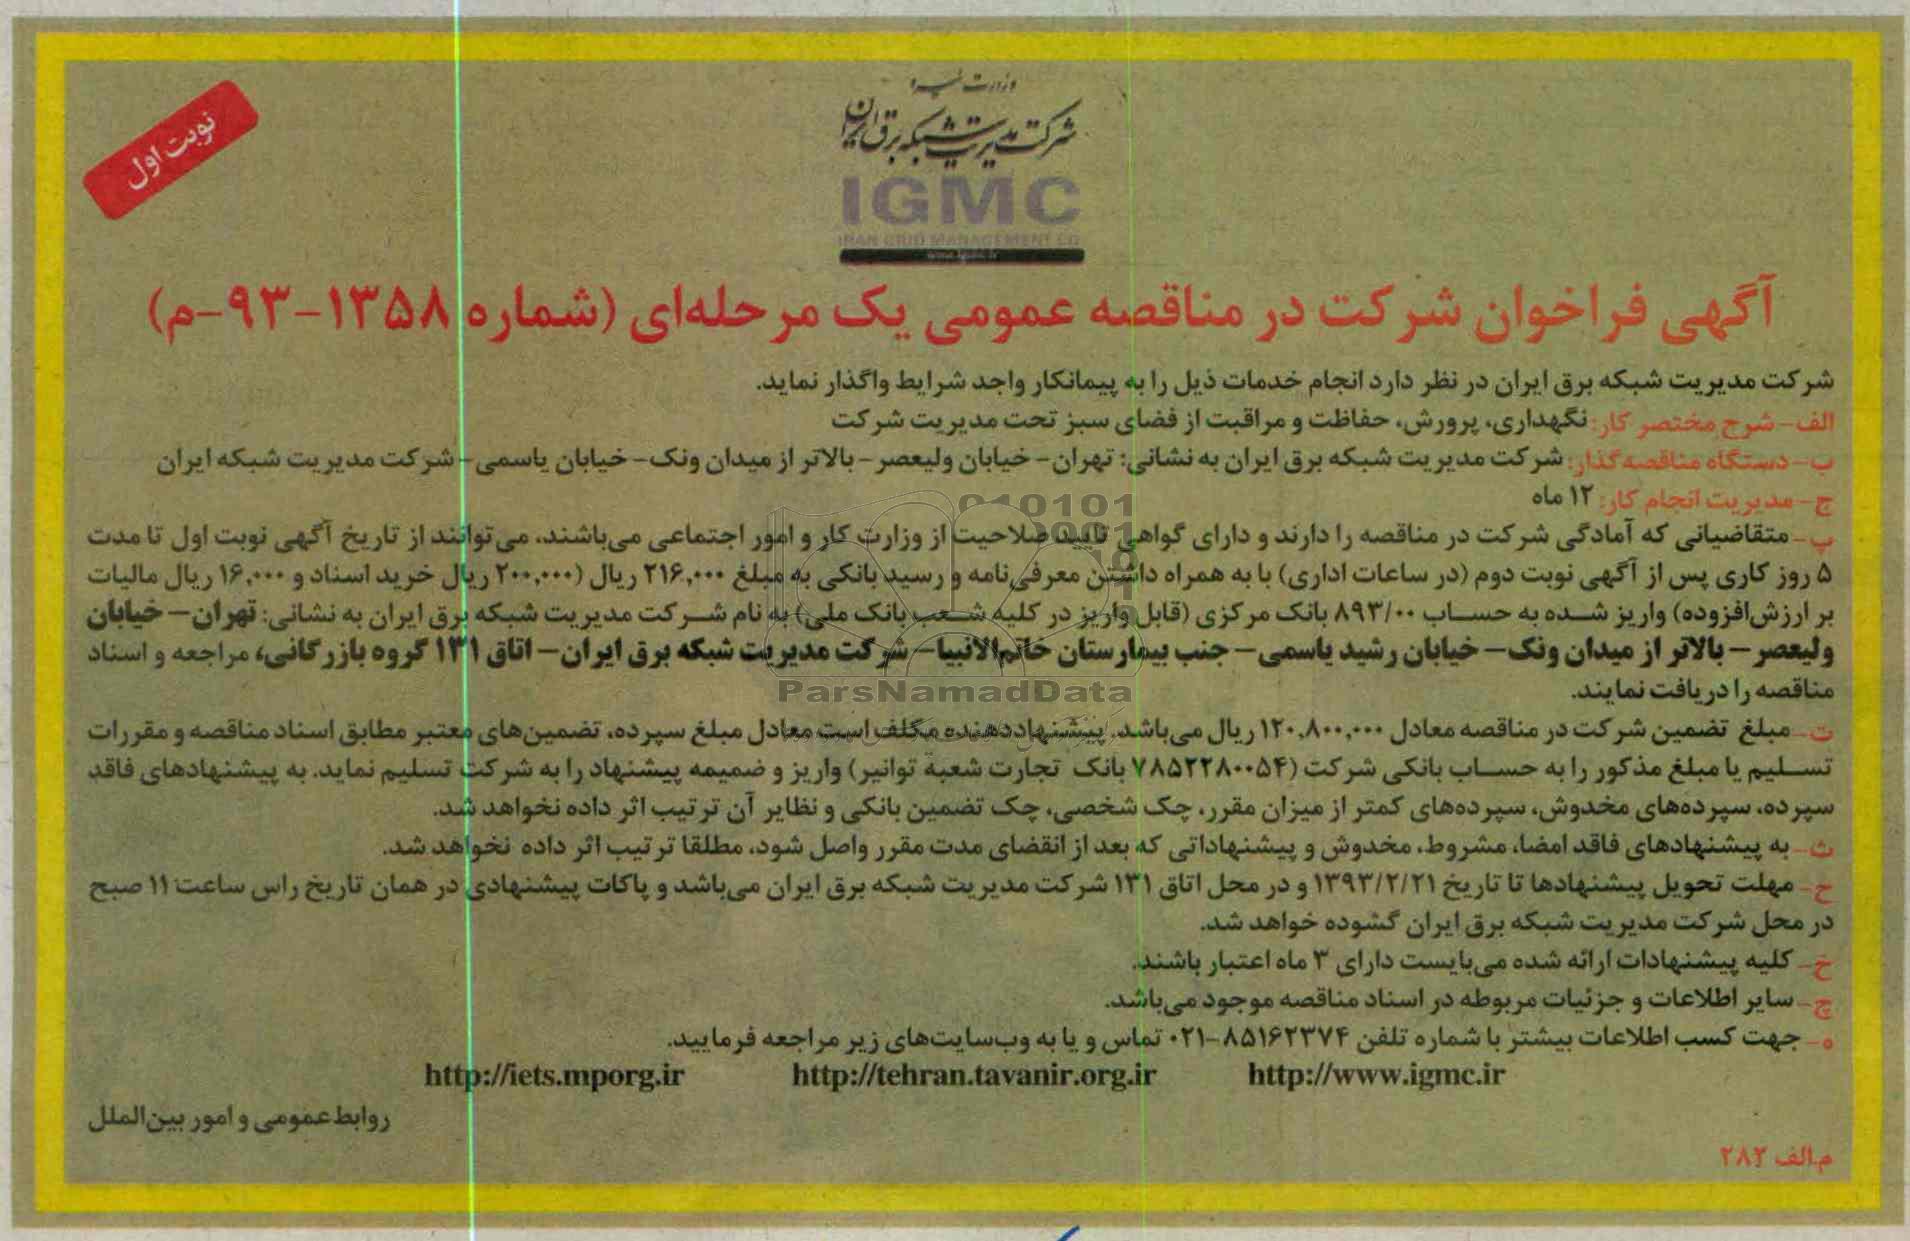 وزارت نیرو
شرکت مدیریت شبکه برق ایران
IGMC
IRAN GRID MANAGEMENT CO
www.igmc.ir
نوبت اول
آگهی فراخوان شرکت در مناقصه عمومی یک مرحله‌ای (شماره ۱۳۵۸-۹۳-م)
شرکت مدیریت شبکه برق ایران در نظر دارد انجام خدمات ذیل را به پیمانکار واجد شرایط واگذار نماید.
الف- شرح مختصر کار: نگهداری، پرورش، حفاظت و مراقبت از فضای سبز تحت مدیریت شرکت
ب- دستگاه مناقصه‌گذار: شرکت مدیریت شبکه برق ایران به نشانی: تهران- خیابان ولیعصر- بالاتر از میدان ونک- خیابان یاسمی- شرکت مدیریت شبکه ایران
ج- مدیریت انجام کار: ۱۲ ماه
پ- متقاضیانی که آمادگی شرکت در مناقصه را دارند و دارای گواهی تایید صلاحیت از وزارت کار و امور اجتماعی می‌باشند، می‌توانند از تاریخ آگهی نوبت اول تا مدت
۵ روز کاری پس از آگهی نوبت دوم (در ساعات اداری) با به همراه داشتن معرفی‌نامه و رسید بانکی به مبلغ ۲۱۶,۰۰۰ ریال (۲۰۰,۰۰۰ ریال خرید اسناد و ۱۶,۰۰۰ ریال مالیات
بر ارزش‌افزوده) واریز شده به حساب ۸۹۳/۰۰ بانک مرکزی (قابل واریز در کلیه شعب بانک ملی) به نام شرکت مدیریت شبکه برق ایران به نشانی: تهران- خیابان
ولیعصر- بالاتر از میدان ونک- خیابان رشید یاسمی- جنب بیمارستان خاتم‌الانبیا- شرکت مدیریت شبکه برق ایران- اتاق ۱۳۱ گروه بازرگانی، مراجعه و اسناد
مناقصه را دریافت نمایند.
ت- مبلغ تضمین شرکت در مناقصه معادل ۱۲۰,۸۰۰,۰۰۰ ریال می‌باشد. پیشنهاددهنده مکلف است معادل مبلغ سپرده، تضمین‌های معتبر مطابق اسناد مناقصه و مقررات
تسلیم یا مبلغ مذکور را به حساب بانکی شرکت (۷۸۵۲۲۸۰۰۵۴ بانک تجارت شعبه توانیر) واریز و ضمیمه پیشنهاد را به شرکت تسلیم نماید. به پیشنهادهای فاقد
سپرده، سپرده‌های مخدوش، سپرده‌های کمتر از میزان مقرر، چک شخصی، چک تضمین بانکی و نظایر آن ترتیب اثر داده نخواهد شد.
ث- به پیشنهادهای فاقد امضا، مشروط، مخدوش و پیشنهاداتی که بعد از انقضای مدت مقرر واصل شود، مطلقا ترتیب اثر داده نخواهد شد.
ح- مهلت تحویل پیشنهادها تا تاریخ ۱۳۹۳/۲/۲۱ و در محل اتاق ۱۳۱ شرکت مدیریت شبکه برق ایران می‌باشد و پاکات پیشنهادی در همان تاریخ راس ساعت ۱۱ صبح
در محل شرکت مدیریت شبکه برق ایران گشوده خواهد شد.
خ- کلیه پیشنهادات ارائه شده می‌بایست دارای ۳ ماه اعتبار باشند.
چ- سایر اطلاعات و جزئیات مربوطه در اسناد مناقصه موجود می‌باشد.
ه- جهت کسب اطلاعات بیشتر با شماره تلفن ۸۵۱۶۲۳۷۴-۰۲۱ تماس و یا به وب‌سایت‌های زیر مراجعه فرمایید.
http://www.igmc.ir http://tehran.tavanir.org.ir http://iets.mporg.ir
روابط عمومی و امور بین‌الملل
م.الف ۲۸۲
ParsNamadData